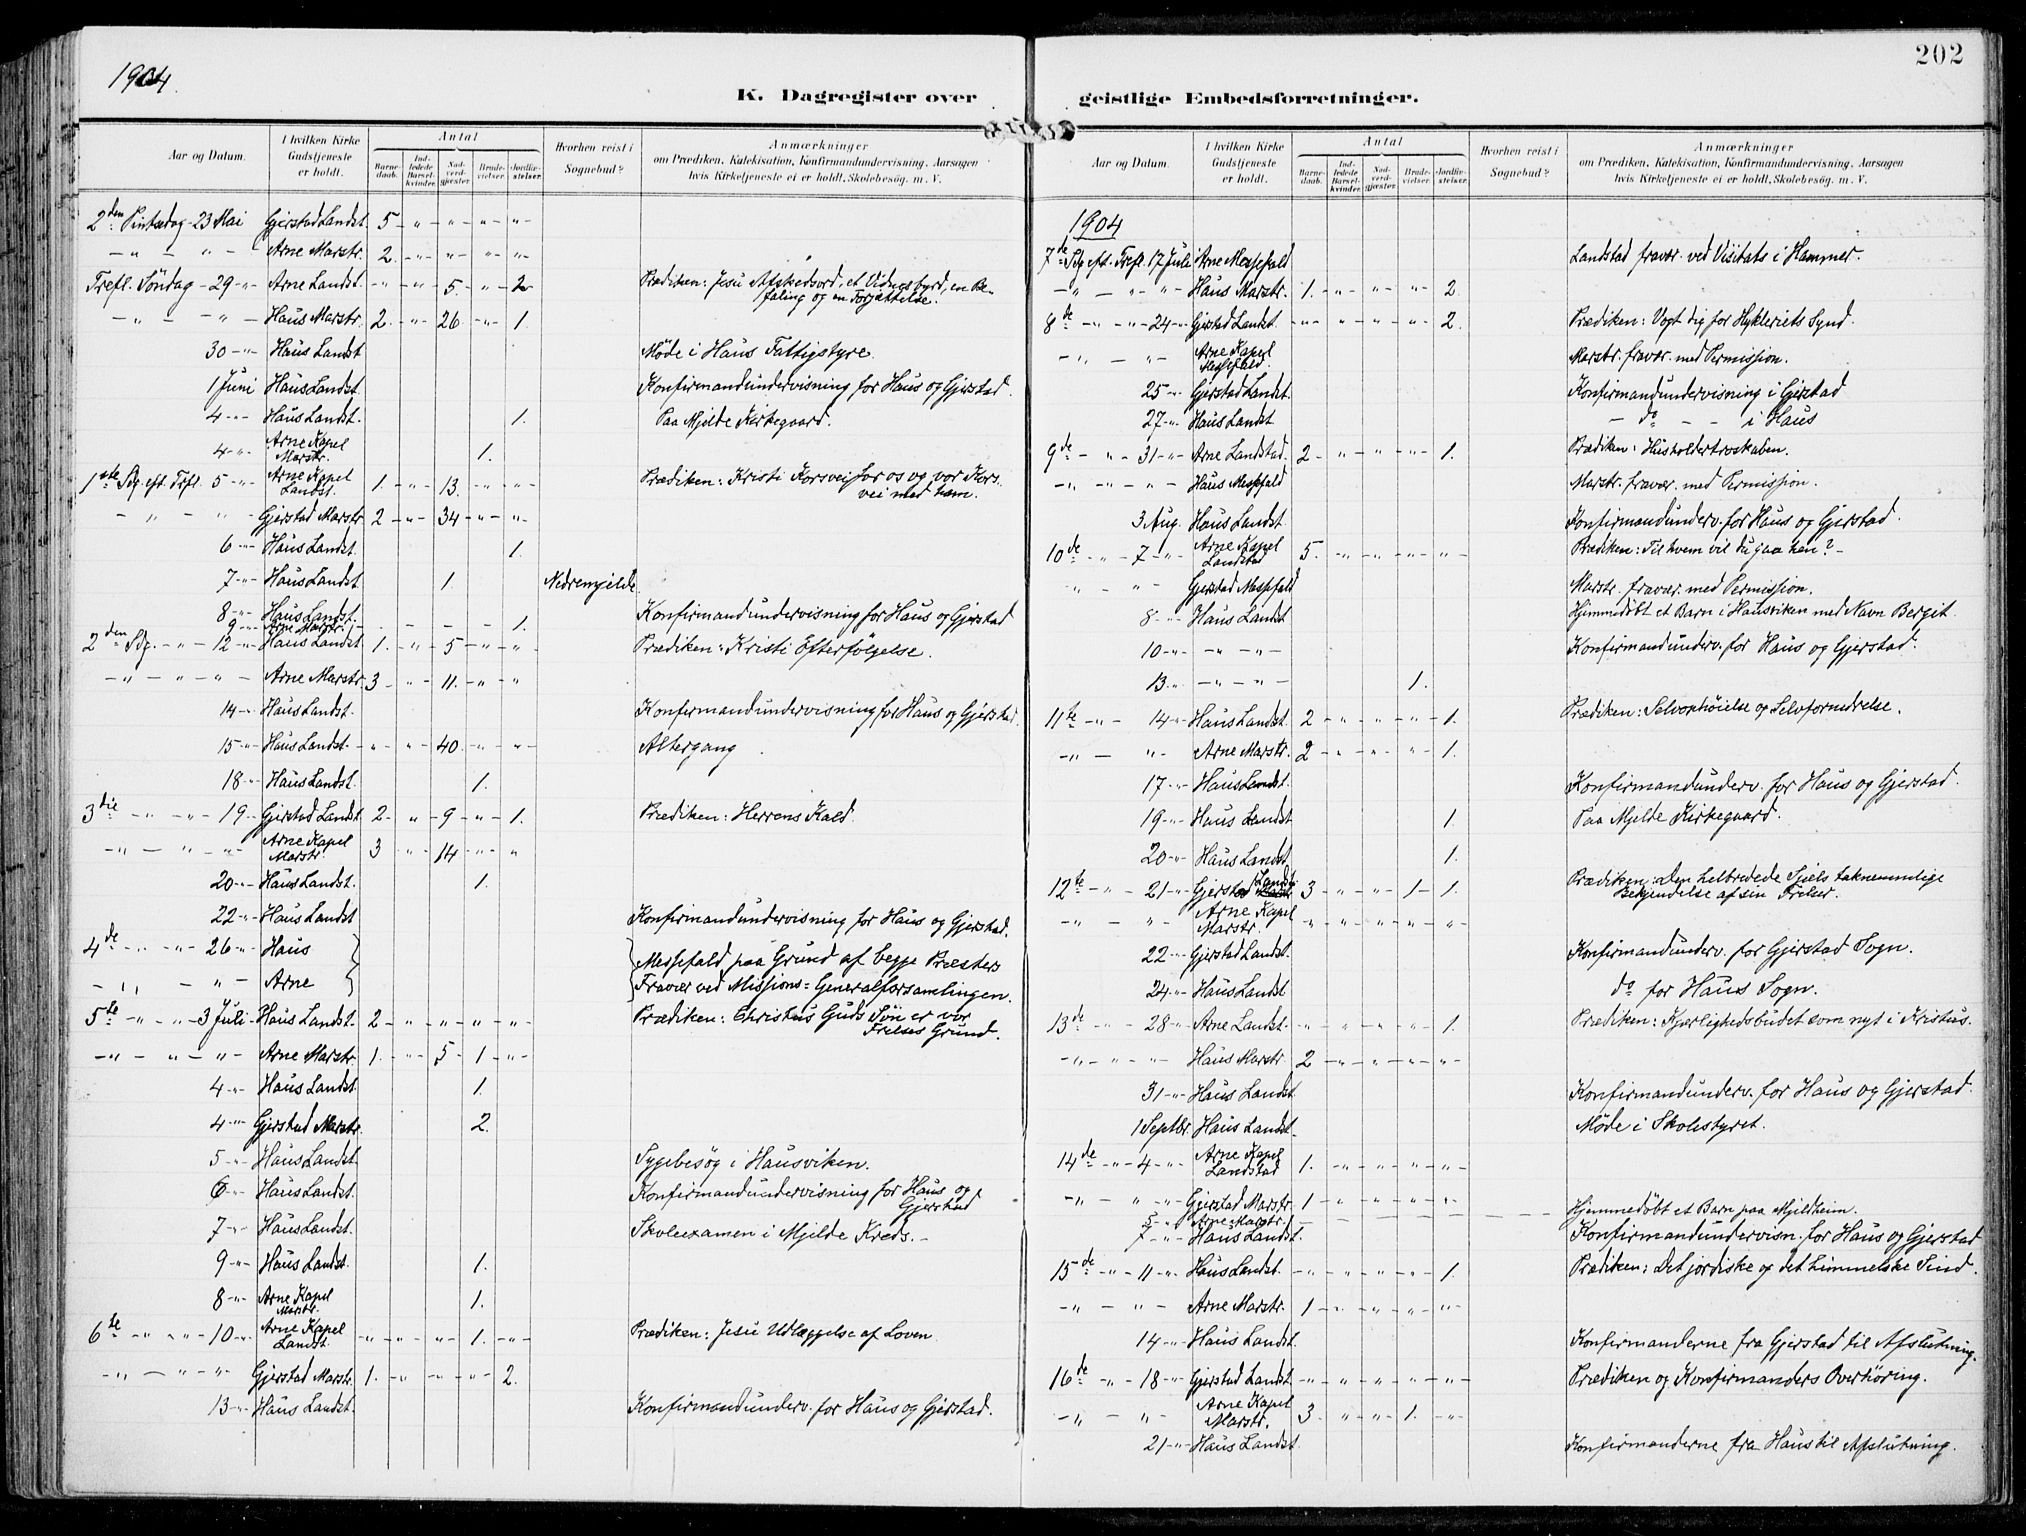 1904.
K. Dagregister over
Aar og Datum.
I hvilken Kirke Gudstjeneste er holdt.
Antal
Barnedaab.
Indledede Barselkvinder.
Nadverdgjester.
Brudevielser.
Jordfæstelser.
Hvorhen reist i Sognebud?
Anmærkninger
om Prædiken, Katekisation, Konfirmandundervisning, Aarsagen
hvis Kirketjeneste ei er holdt, Skolebesøg. m. V.
2den Pintsedag - 23 Mai Gjerstad Landst. 5 " " " "
- " - " - " - Arne Marstr. 2. - " - " - " - " -
Trefl. Söndag - 29 - " - Arne Landst. - " - " - 5. - " - 2 Prædiken: Jesu Afskedsord, et Vidnesbyrd, en Be-
faling og en Forjættelse.
- " - - " - Haus Marstr. 2. - " - 26. - " - 1.
30 - " - Haus Landst Møde i Haus Fattigstyre.
1 Juni Haus Landst. Konfirmandundervisning for Haus og Gjerstad.
4 - " - Haus Landst. 1. Paa Mjelde Kirkegaard.
4 - " - Arne Kapel
Marstr. 1.
1ste Sdg. eft. Trefl. 5 - " - Arne Kapel
Landst. 1. - " - 13. - " - " - Prædiken: Kristi Korsvei for os og vor Kors-
vei med ham.
- " - - " - Gjerstad Marstr. 2 - " - 34 - " - " -
6 - " - Haus Landst. 1.
7 - " - Haus Landst. 1. Nedremjelde
8 - " - Haus Landst. Konfirmandundervisning for Haus og Gjerstad
9 - " - Arne Marstr. - - - - 1.
2den Sdg. - " - 12 - " - Haus Landst. 1. - " - 5 - " - " - Prædiken: Kristi Efterfølgelse.
- " - " - " - Arne Marstr. 3 - " - 11. - " - "
14 - " - Haus Landst. Konfirmandundervisning for Haus og Gjerstad.
15 - " - Haus Landst. - " - " - 40. - " - " - Altergang
18 - " - Haus Landst. 1.
3die - " - " - 19 - " - Gjerstad Landst. 2 - " - 9 - " - 1. Prædiken: Herrens Kald.
- " - " - " - Arne Kapel
Marstr. 3 " 14 - " - "
20 - " - Haus Landst. 1.
22 - " - Haus Landst Konfirmandundervisning for Haus og Gjerstad.
4de - " - " - 26 - " - Haus Messefald paa Grund af begge Præsters
- " - - " - Arne Fravær ved Missions=Generalforsamlingen.
5te - " - " - 3 Juli - Haus Landst. 2 - " - " - " - " - Prædiken: Christus Guds Søn er vor
Frelses Grund.
- " - " - " - Arne Marstr. 1. - " - 5 - 1 - " -
4 - " - Haus Landst. 1.
4 - " - Gjerstad Marstr. 2.
5 - " - Haus Landst. Sygebesøg i Hausviken.
6 - " - Haus Landst. Konfirmandundervisning for Haus og
Gjerstad
7 - " - Haus Landst. Skoleexamen i Mjelde Kreds. -
9 - " - Haus Landst. 1.
8 - " - Arne Kapel
Marstr. 1.
6te - " - " - 10 - " - Arne Kapel
Landst. - " - " - " - 1. - " - Prædiken: Jesu Udlæggelse af Loven.
- " - " - " - Gjerstad Marstr. 1. - " - " - " - 2.
13 - " - Haus Landst. Konfirmandunderv. for Haus og Gjerstad.
202
geistlige Embedsforretninger.
Aar og Datum.
I hvilken Kirke Gudstjeneste er holdt.
Antal
Barnedaab.
Indledede Barselkvinder.
Nadverdgjester.
Brudevielser.
Jordfæstelser.
Hvorhen reist i Sognebud?
Anmærkninger
om Prædiken, Katekisation, Konfirmandundervisning, Aarsagen
hvis Kirketjeneste ei er holdt, Skolebesøg. m. V.
1904
7de Sdg. eft. Trefl. 17 Juli Arne Messefald Landstad fravær. ved Visitats i Hammer.
- " - " - " - Haus Marstr. 1. - " - " - " - 2.
8de - " - " - 24 - " - Gjerstad Landst. - " - " - " - " - 2. Prædiken: Vogt dig for Hykleriets Synd.
- " - - " - Arne Kapel
Messefald. Marstr. fravær. med Permission.
25 - " - Gjerstad Landst. Konfirmandundervisning i Gjerstad
27 - " - Haus Landst - do - - i Haus
9de - " - 31 - " - Arne Landstad. 2 - " - " - " - 1. Prædiken: Husholdertroskaben.
- " - " - " - Haus Messfald Marstr. fravær. med Permission.
3 Aug. Haus Landst. Konfirmandunderv. for Haus og Gjerstad.
10de - " - 7 - " - Arne Kapel
Landstad 5. - " - " - " - " - Prædiken: Til hvem vil du gaa hen? -
" - " - Gjerstad Messfald Marstr. fravær. med Permission.
8 - " - Haus Landst Hjemmedöbt et Barn i Hausviken med Navn Bergit.
10 - " - - " - " - Konfirmandunderv. for Haus og Gjerstad.
13 - " - - " - " - 1.
11te - " - 14 - " - Haus Landst. 2 - " - " - " - 1. Prædiken: Selvophøielse og Selvfornedrelse.
- " - " - Arne Marstr. 2 - " - " - " - 1.
17 - " - Haus Landst. Konfirmandunderv. for Haus og Gjerstad.
19 - " - Haus Landst 1. Paa Mjelde Kirkegaard.
20 - " - Haus Landst. 1.
12te - " - 21 - " - Gjerstad Landst. 3 - " - " - 1 - 1. Prædiken: Den helbredede Sjels taknemmlige
Bekjendelse af sin Frelser.
- " - " - Arne Kapel
Marstr. " - " - " - " - " -
22 - " - Gjerstad Landst. Konfirmandunderv. for Gjerstad Sogn.
24 - " - Haus Landst do for Haus Sogn.
13de - " - 28 - " - Arne Landst. - " - " - " - " - 1. Prædiken: Kjærlighedsbudet som nyt i Kristus.
- " - " - " Haus Marstr. 2 - " - " - " - " -
31 - " - Haus Landst Konfirmandunderv. for Haus og Gjerstad.
1 Septbr. Haus Landst. Møde i Skolestyret.
14de - " - 4 - " - Arne Kapel
Landstad 1. - " - " - " - " -
- " - " - " - Gjerstad Marstr. 1 - " - " - " - " -
5 - " - Arne Marstr. 1 - - - - Hjemmedöbt et Barn paa Mjeldheim.
7 - " - Haus Landst. Konfirmandundervisn. for Haus og Gjerstad
15de - " - 11 - " - Haus Landst. - " - " - " - " - 1. Prædiken: Det jordiske og det himmelske Sind.
- " - " - Arne Marstr. 1 - " - " - " - " -
14 - " - Haus Landst. Konfirmanderne fra Gjerstad til Afslutning.
16de - " - 18 - " - Gjerstad Landst. - " - " - " - " - " - Prædiken og Konfirmanders Overhøring.
- " - " - Arne Kapel
Marstr. 3 - " - " - 1. - " -
21 - " - Haus Landst. Konfirmanderne fra Haus til Afslutning.